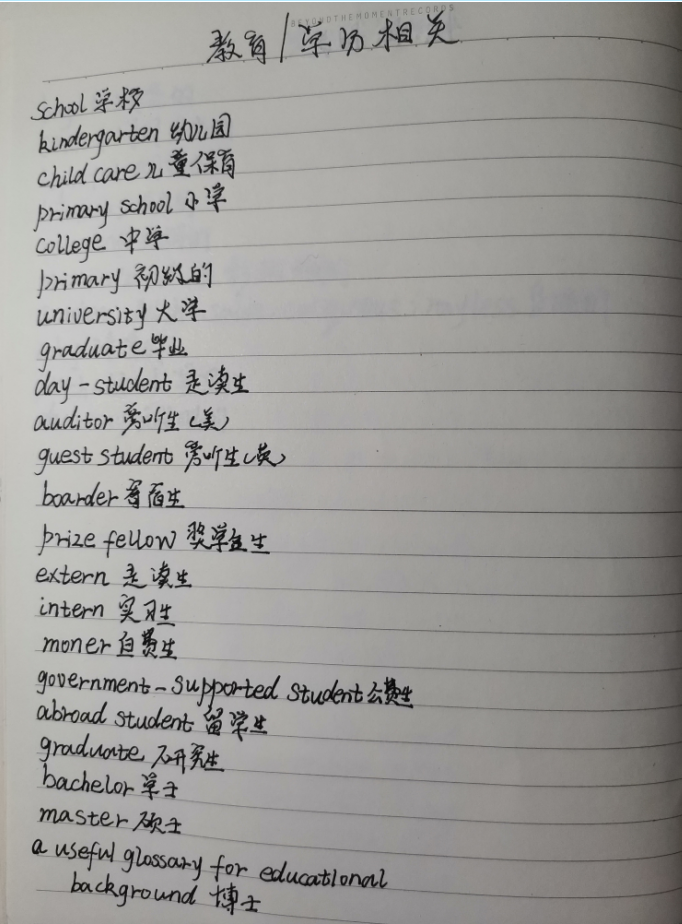 BEYONDTHEMOMENTRECORDS
教育/学历相关
school 学校
kindergarten 幼儿园
child care 儿童保育
primary school 小学
college 中学
primary 初级的
university 大学
graduate 毕业
day-student 走读生
auditor 旁听生(美)
guest student 旁听生(英)
boarder 寄宿生
prize fellow 奖学金生
extern 走读生
intern 实习生
moner 自费生
government-supported student 公费生
abroad student 留学生
graduate 研究生
bachelor 学士
master 硕士
a useful glossary for educational
background 博士